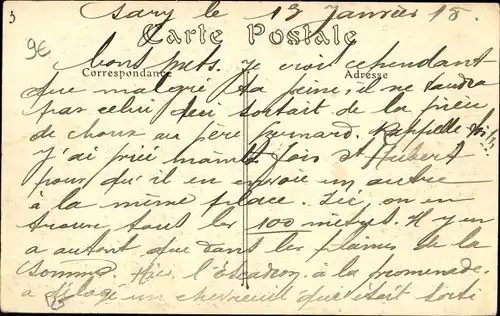 3
Sary le 13 Janvier 18.
9€
Carte Postale
bons prés. Je crois cependant
Correspondance
Adresse
que malgré ta peine, il ne faudra
pas celui qui sortait de la pièce
de choux au père Grenard. Rappelle-toi!!!
J'ai prié maintes fois St Hubert
pour qu'il en envoie un autre
à la même place. Ici, on en
trouve tous les 100 mètres. Il y en
a autant que dans les plaines de la
Somme. Hier l'Escadron à la promenade
a délogé un chevreuil qui était sorti